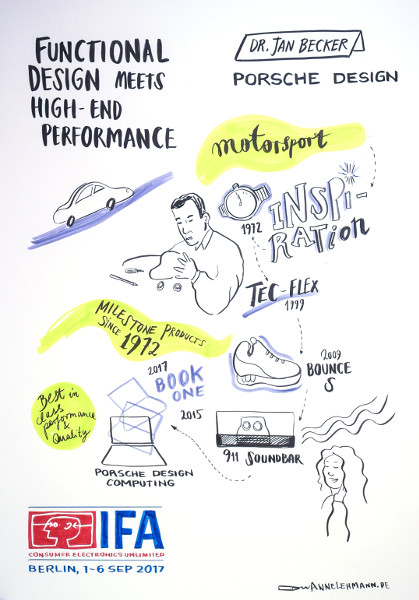 FUNCTIONAL
DESIGN MEETS
HIGH-END
PERFORMANCE
DR. JAN BECKER
PORSCHE DESIGN
motorsport
1972
INSPI-
RATION
TEC-FLEX
1999
MILESTONE PRODUCTS
SINCE 1972
2009
BOUNCE
S
2017
BOOK
ONE
2015
Best in
class
performance
&
Quality
911 SOUNDBAR
PORSCHE DESIGN
COMPUTING
IFA
CONSUMER ELECTRONICS UNLIMITED
BERLIN, 1-6 SEP 2017
ANNELEHMANN.DE